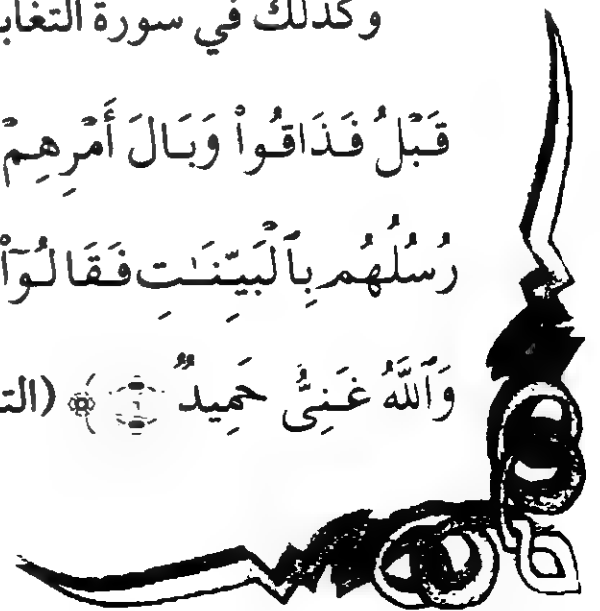 وكذلك في سورة التغاب
قَبْلُ فَذَاقُواْ وَبَالَ أَمْرِهِمْ
رُسُلُهُم بِٱلْبَيِّنَـٰتِ فَقَالُوٓاْ
وَٱللَّهُ غَنِىٌّ حَمِيدٌ ٦ ﴾ (الت